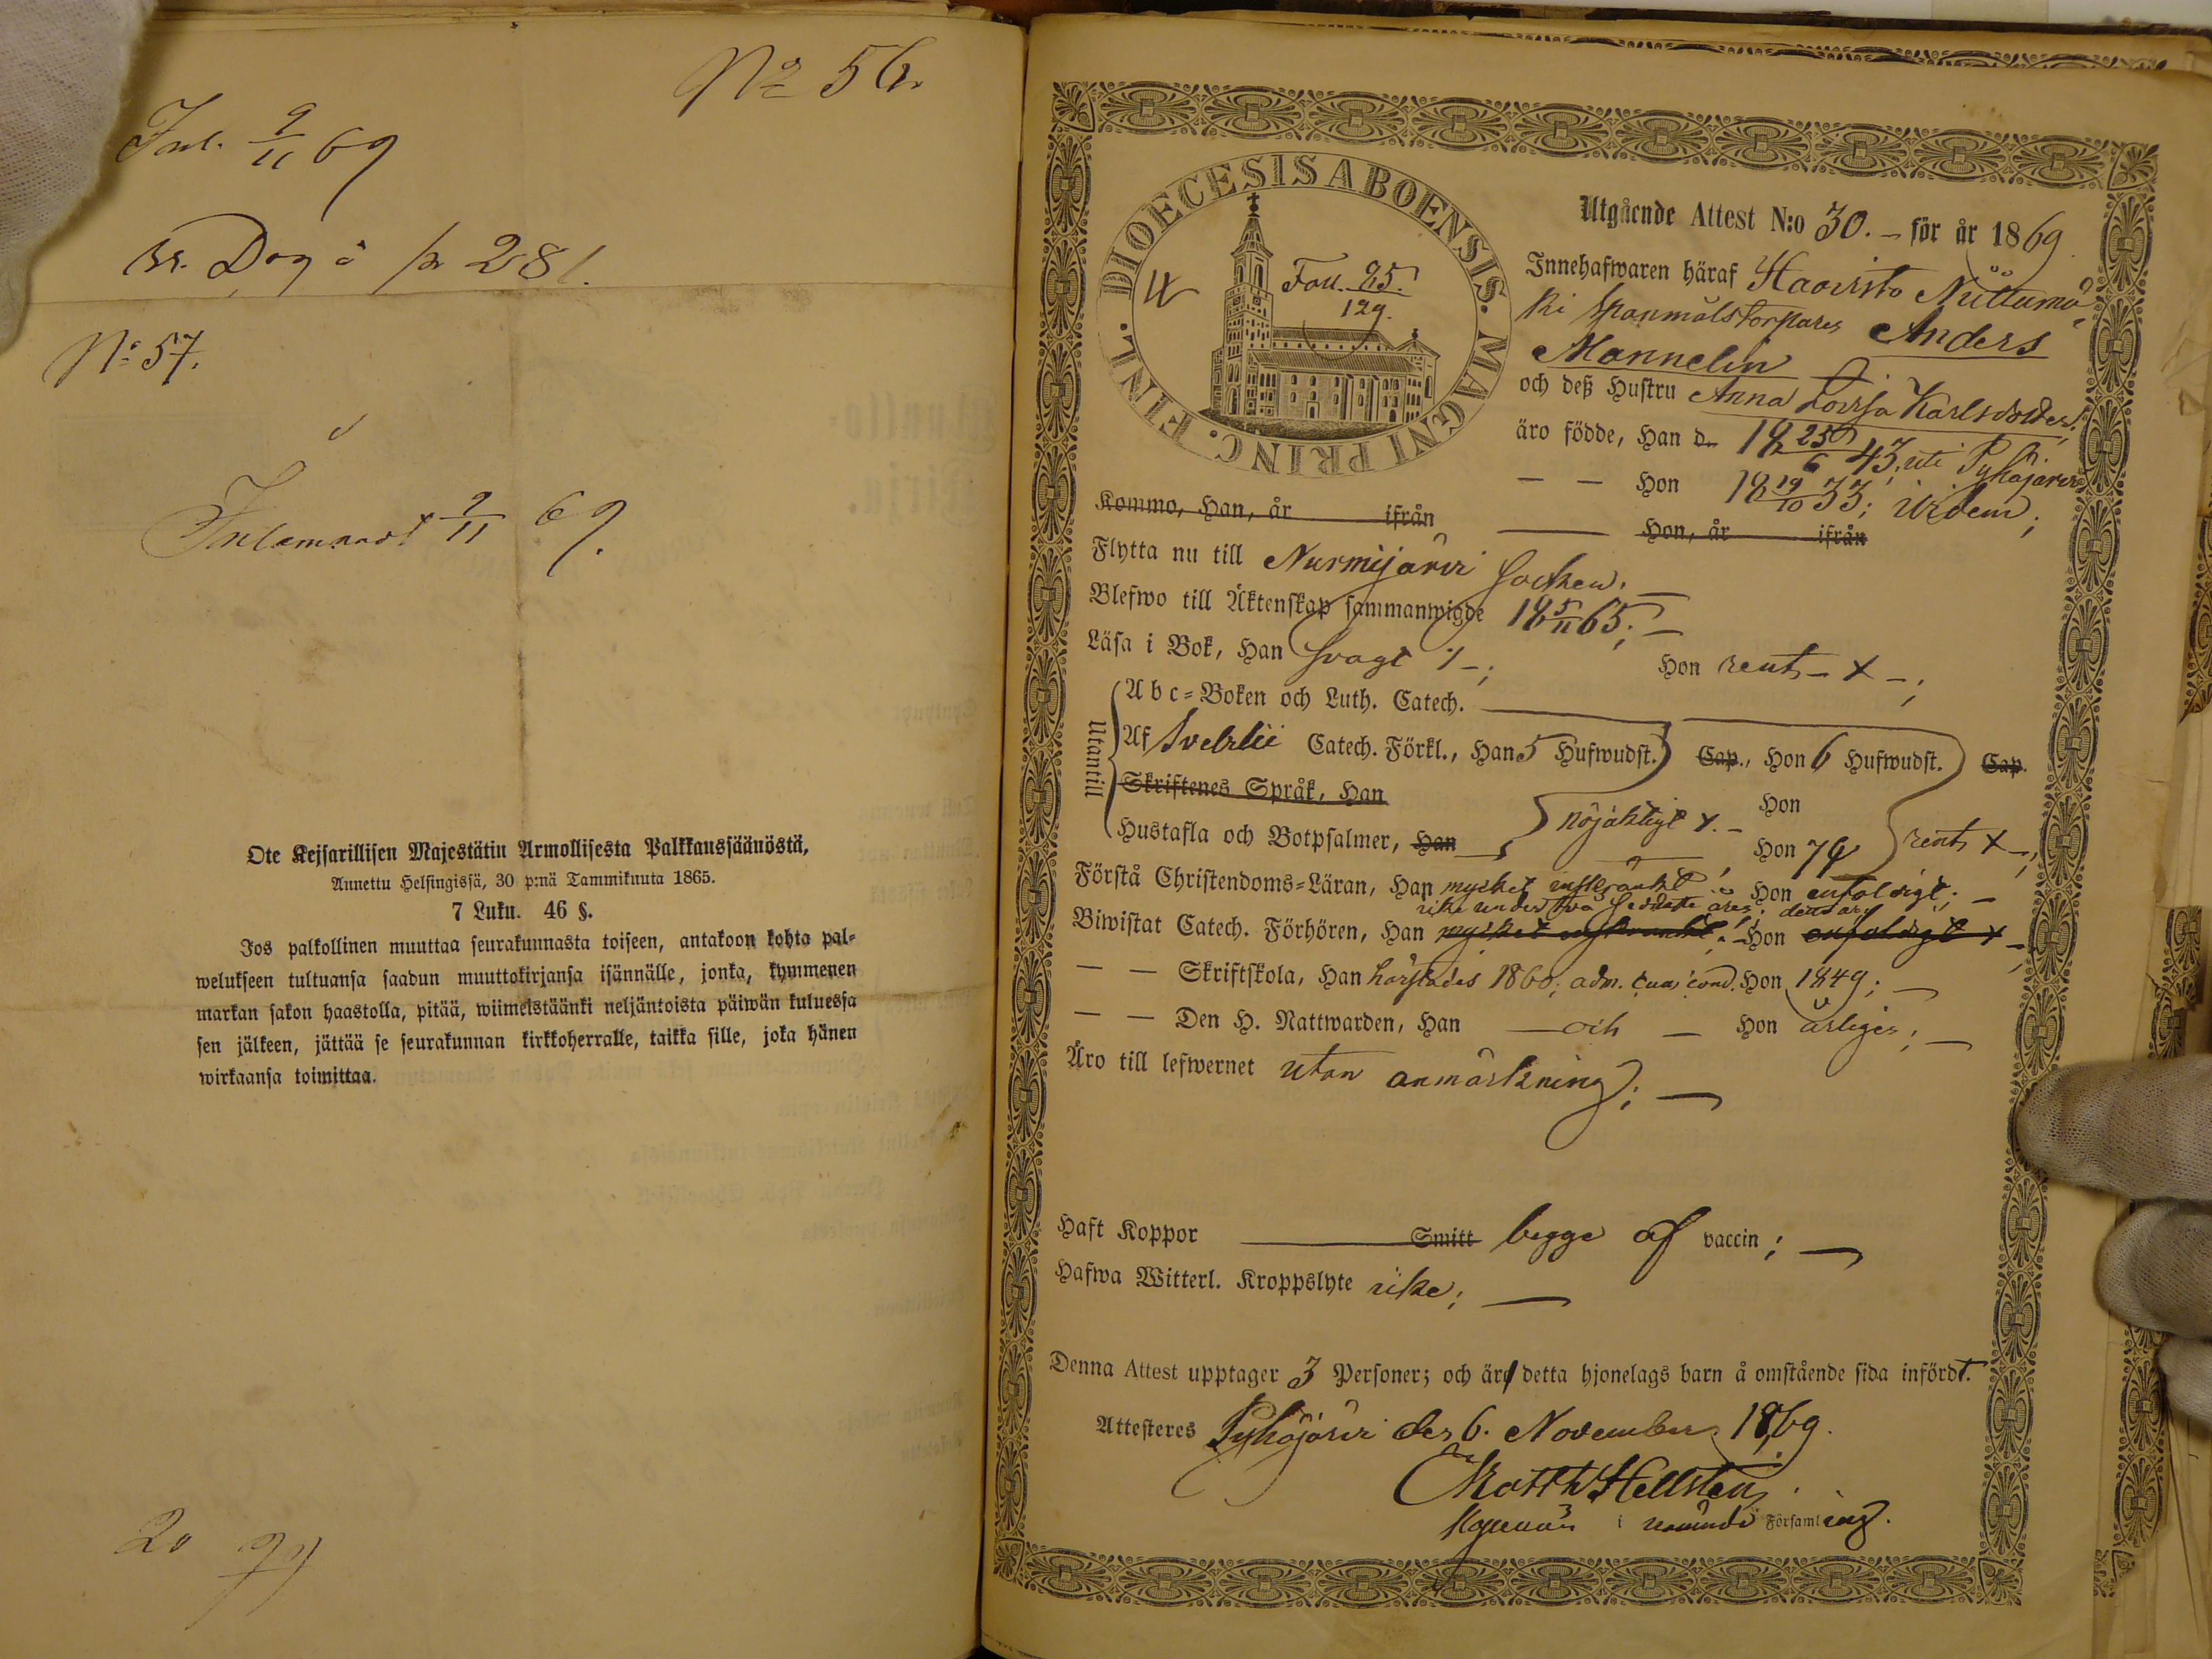 No 56.
Inl. 9/11 69
N:o 57.
Inlemnadt 9/11 69.
Ote Kejsarillisen Majestätin Armollisesta Palkkaussäännöstä,
Annettu Helsingissä, 30 p:nä Tammikuuta 1865.
7 Luku. 46 §.
Jos palkollinen muuttaa seurakunnasta toiseen, antakoon kohta pal-
welukseen tultuansa saadun muuttokirjansa isännälle, jonka, kymmenen
markan sakon haastolla, pitää, wiimeistäänki neljäntoista päiwän kuluessa
sen jälkeen, jättää se seurakunnan kirkkoherralle, taikka sille, joka hänen
wirkaansa toimittaa.
20
DIOECESIS ABOENSIS. MAGNI PRINC. FINL.
Foll. 25.
129.
Utgående Attest N:o 30. för år 1869
Innehafwaren häraf Haavisto
Spanmålstorparen Anders
Mannelin
och deß Hustru Anna Lovisa Karlsdotter,
äro födde, Han d. 18 25/6 43, uti Pyhäjärvi
Hon 18 19/10 33; ibidem;
Kommo, Han, år ifrån Hon, år ifrån
Flytta nu till Nurmijärvi Socken.
Blefwo till Äktenskap sammanwigde 18 5/11 65;
Läsa i Bok, Han svagt Hon rent x;
Utantill
Abc-Boken och Luth. Catech.
Af Svebelii Catech. Förkl., Han 5 Hufwudst. Cap., Hon 6 Hufwudst. Cap.
Skriftenes Språk, Han Hon
Hustafla och Botpsalmer, Han nöjaktigt x. Hon rent x
Förstå Christendoms-Läran, Han mycket inskränkt; Hon enfaldigt;
icke under två sednaste åren;
Biwistat Catech. Förhören, Han mycket inskränkt. Hon enfaldigt x
Skriftskola, Han hörstades 1860; adm. cum cond. Hon 1849;
Den H. Nattwarden, Han och Hon årligen;
Äro till lefwernet utan anmärkning;
Haft Koppor Smitt begge af vaccin;
Hafwa Witterl. Kroppslyte icke;
Denna Attest upptager 3 Personer; och äro detta hjonelags barn å omstående sida infördt.
Attesteres Pyhäjärvi den 6. November 1869.
Matth Hellsten
i nämnde Församling.